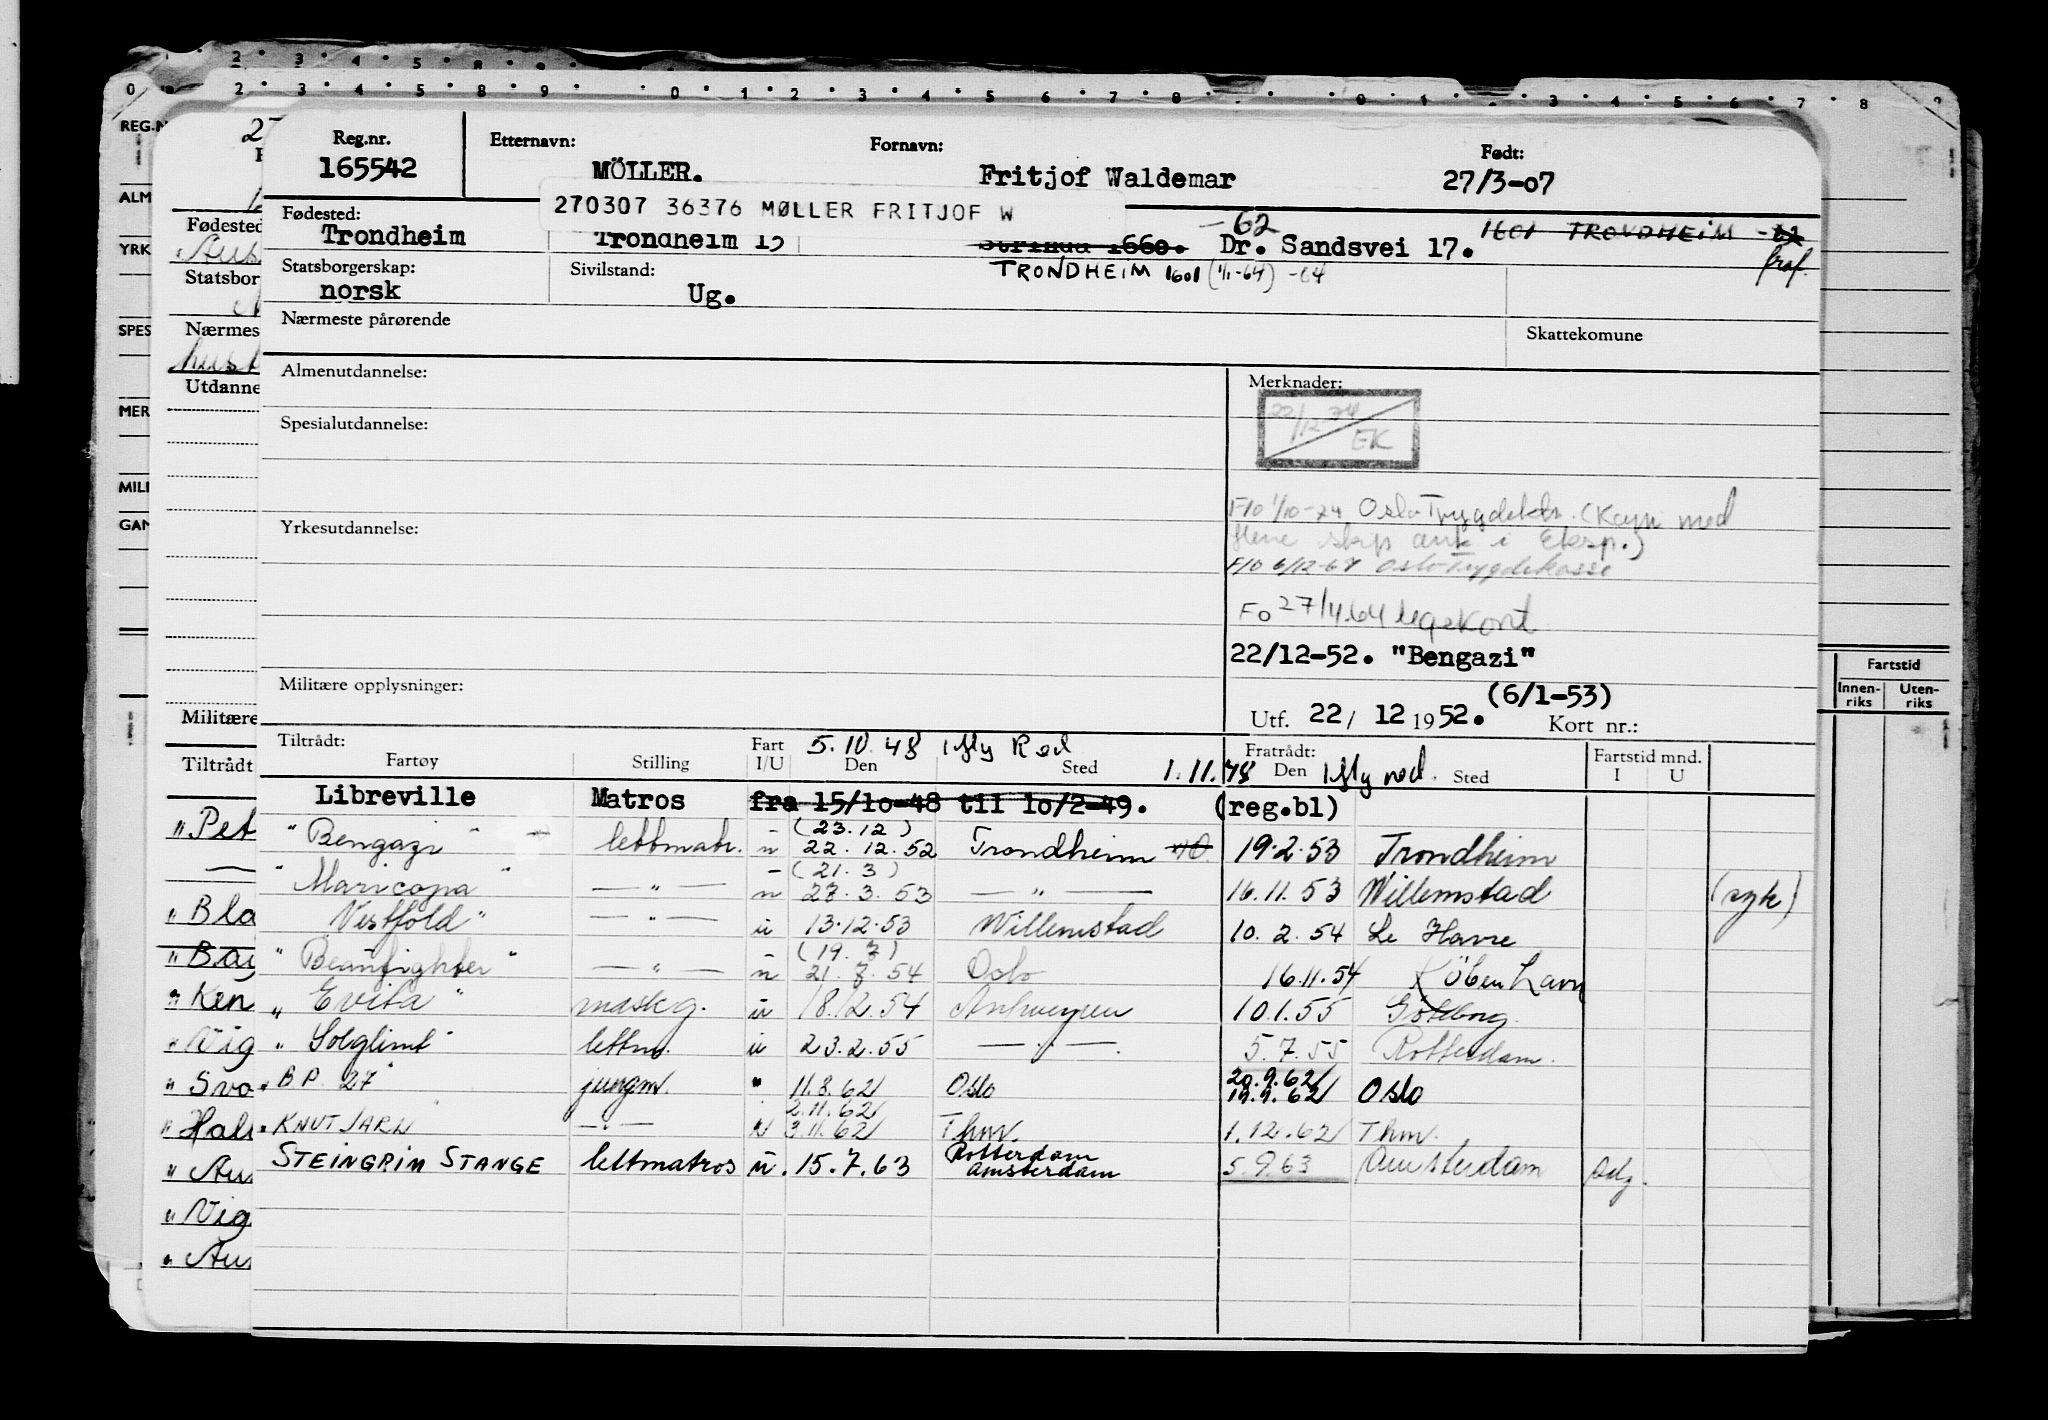 Reg.nr. Etternavn: Fornavn: Født:
165542 MÖLLER. Fritjof Waldemar 27/3-07
270307 36376 MØLLER FRITJOF W
Fødested: -62 1601 TRONDHEIM
Trondheim Trondheim 15 Strinda 1660. Dr. Sandsvei 17.
Statsborgerskap: Sivilstand: TRONDHEIM 1601 (1/1-64) -64
norsk Ug.
Nærmeste pårørende Skattekomune
Almenutdannelse: Merknader:
22/12-74 EK
Spesialutdannelse:
F/O 1/10-74 Oslo Trygdektr. med
Yrkesutdannelse:
i Eksp.)
F/O 6/12-67 Oslo Trygdekasse
Fo 27/4.64 legekont
22/12-52. "Bengazi"
Militære opplysninger: (6/1-53)
Utf. 22/ 12 1952. Kort nr.:
Tiltrådt: Fart 5.10.48 Fratrådt: Fartstid mnd.
Fartøy Stilling I/U Den Sted 1.11.48 Den Sted I U
Libreville Matros fra 15/10-48 til 10/2-49. (reg.bl)
(23.12)
" Bengazi " lettmatr. u 22.12.52 Trondheim 19.2.53 Trondheim
(21.3)
" Maricopa " — " — u 27.3.53 — " — 16.11.53 Willemstad (syk)
Vestfold " — " — u 13.12.53 Willemstad 10.2.54 Le Havre
(19.7)
" Beaufighter " — " — u 21.7.54 Oslo 16.11.54 København
" Evita " maskg. u 18.12.54 Antwerpen 10.1.55 Göteborg
" Solglimt " lettm. u 23.2.55 — " — 5.7.55 Rotterdam.
20.9.62
" BP. 27 " jungm. " 11.8.62 Oslo 19.9.62 Oslo
2.11.62
" KNUT JARL " — " — u 3.11.62 Thm. 1.12.62 Thm.
Rotterdam
STEINGRIM STANGE lettmatros u. 15.7.63 Amsterdam 5.9.63 Amsterdam
REG.N
ALM
YRK
SPES
MER
MILI
GAN
Fødested
Statsbor
Nærmes
Utdanne
Militære
Tiltrådt
" Pet
" Bla
" Ken
" Vig
" Sva
" Vig
Fartstid
Innen-riks Uten-riks